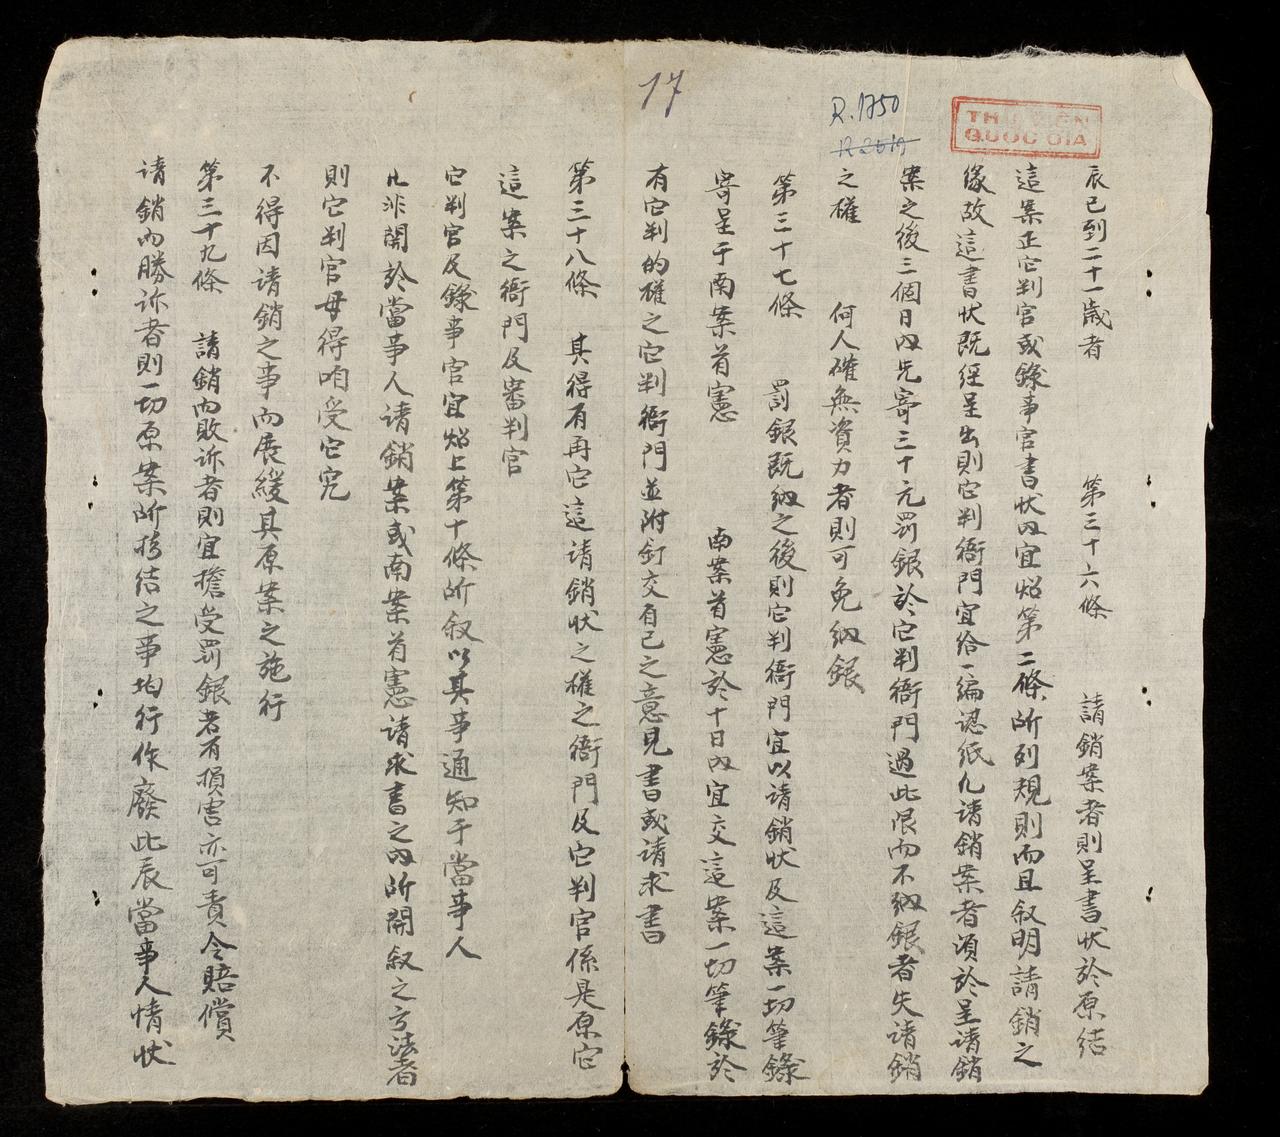 17
R.1750
THƯ VIỆN
QUỐC GIA
辰已到二十一歲者　第三十六條　請銷案者則呈書狀於原結
這案正它判官或錄事官書狀內宜炤第二條所列規則而且叙明請銷之
緣故這書狀既經呈出則它判衙門宜給一編認紙凡請銷案者須於呈請銷
案之後三個日內先寄三十元罰銀於它判衙門過此限而不納銀者失請銷
之權　何人確無資力者則可免納銀
第三十七條　罰銀既納之後則它判衙門宜以請銷狀及這案一切筆錄
寄呈于南案首憲　南案首憲於十日內宜交這案一切筆錄於
有它判的權之它判衙門並附訂交自己之意見書或請求書
第三十八條　其得有再它這請銷狀之權之衙門及它判官係是原它
這案之衙門及審判官
它判官及錄事官宜炤上第十條所叙以其事通知于當事人
凡非開於當事人請銷案或南案首憲請求書之內所開叙之方法者
則它判官毋得咱受它究
不得因請銷之事而展緩其原案之施行
第三十九條　請銷而敗訴者則宜擔受罰銀者有損害亦可責令賠償
請銷而勝訴者則一切原案所拷結之事均行作廢此辰當事人情狀